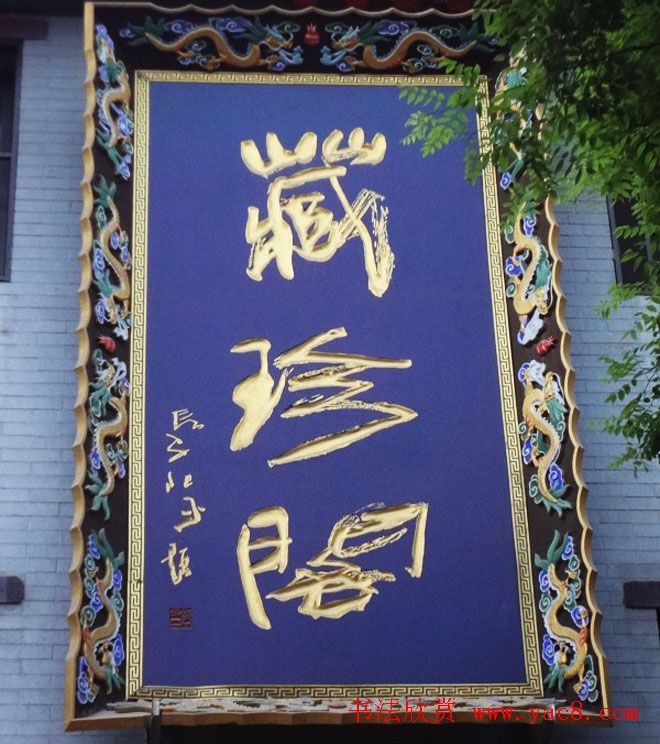 藏珍阁
书法欣赏 www.yac8.com